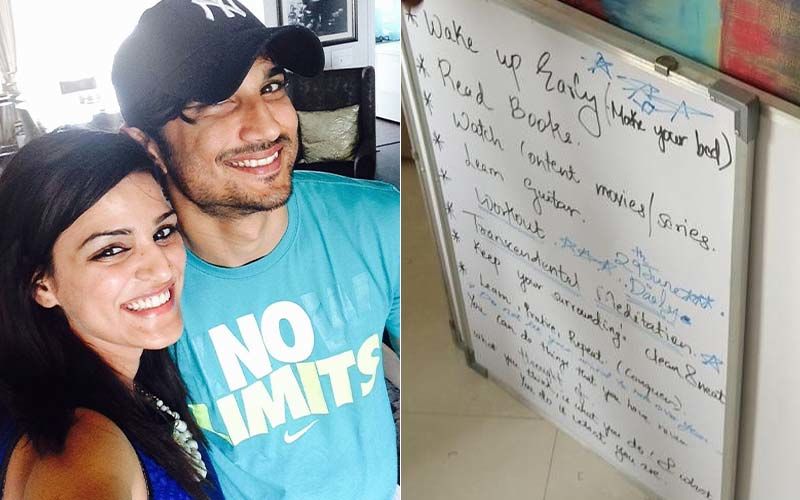 NY
NO
LIMITS
* Wake up Early (Make your bed)
* Read Books.
* Watch Content movies/series.
* Learn Guitar.
* Workout.
* Transcendental Meditation.
29th June
Daily
* Keep your surrounding clean & neat
* Learn, Practice, Repeat. (Conquer).
You can do things that you have never
thought of
what you think is what you do, & what
You do is what you are.